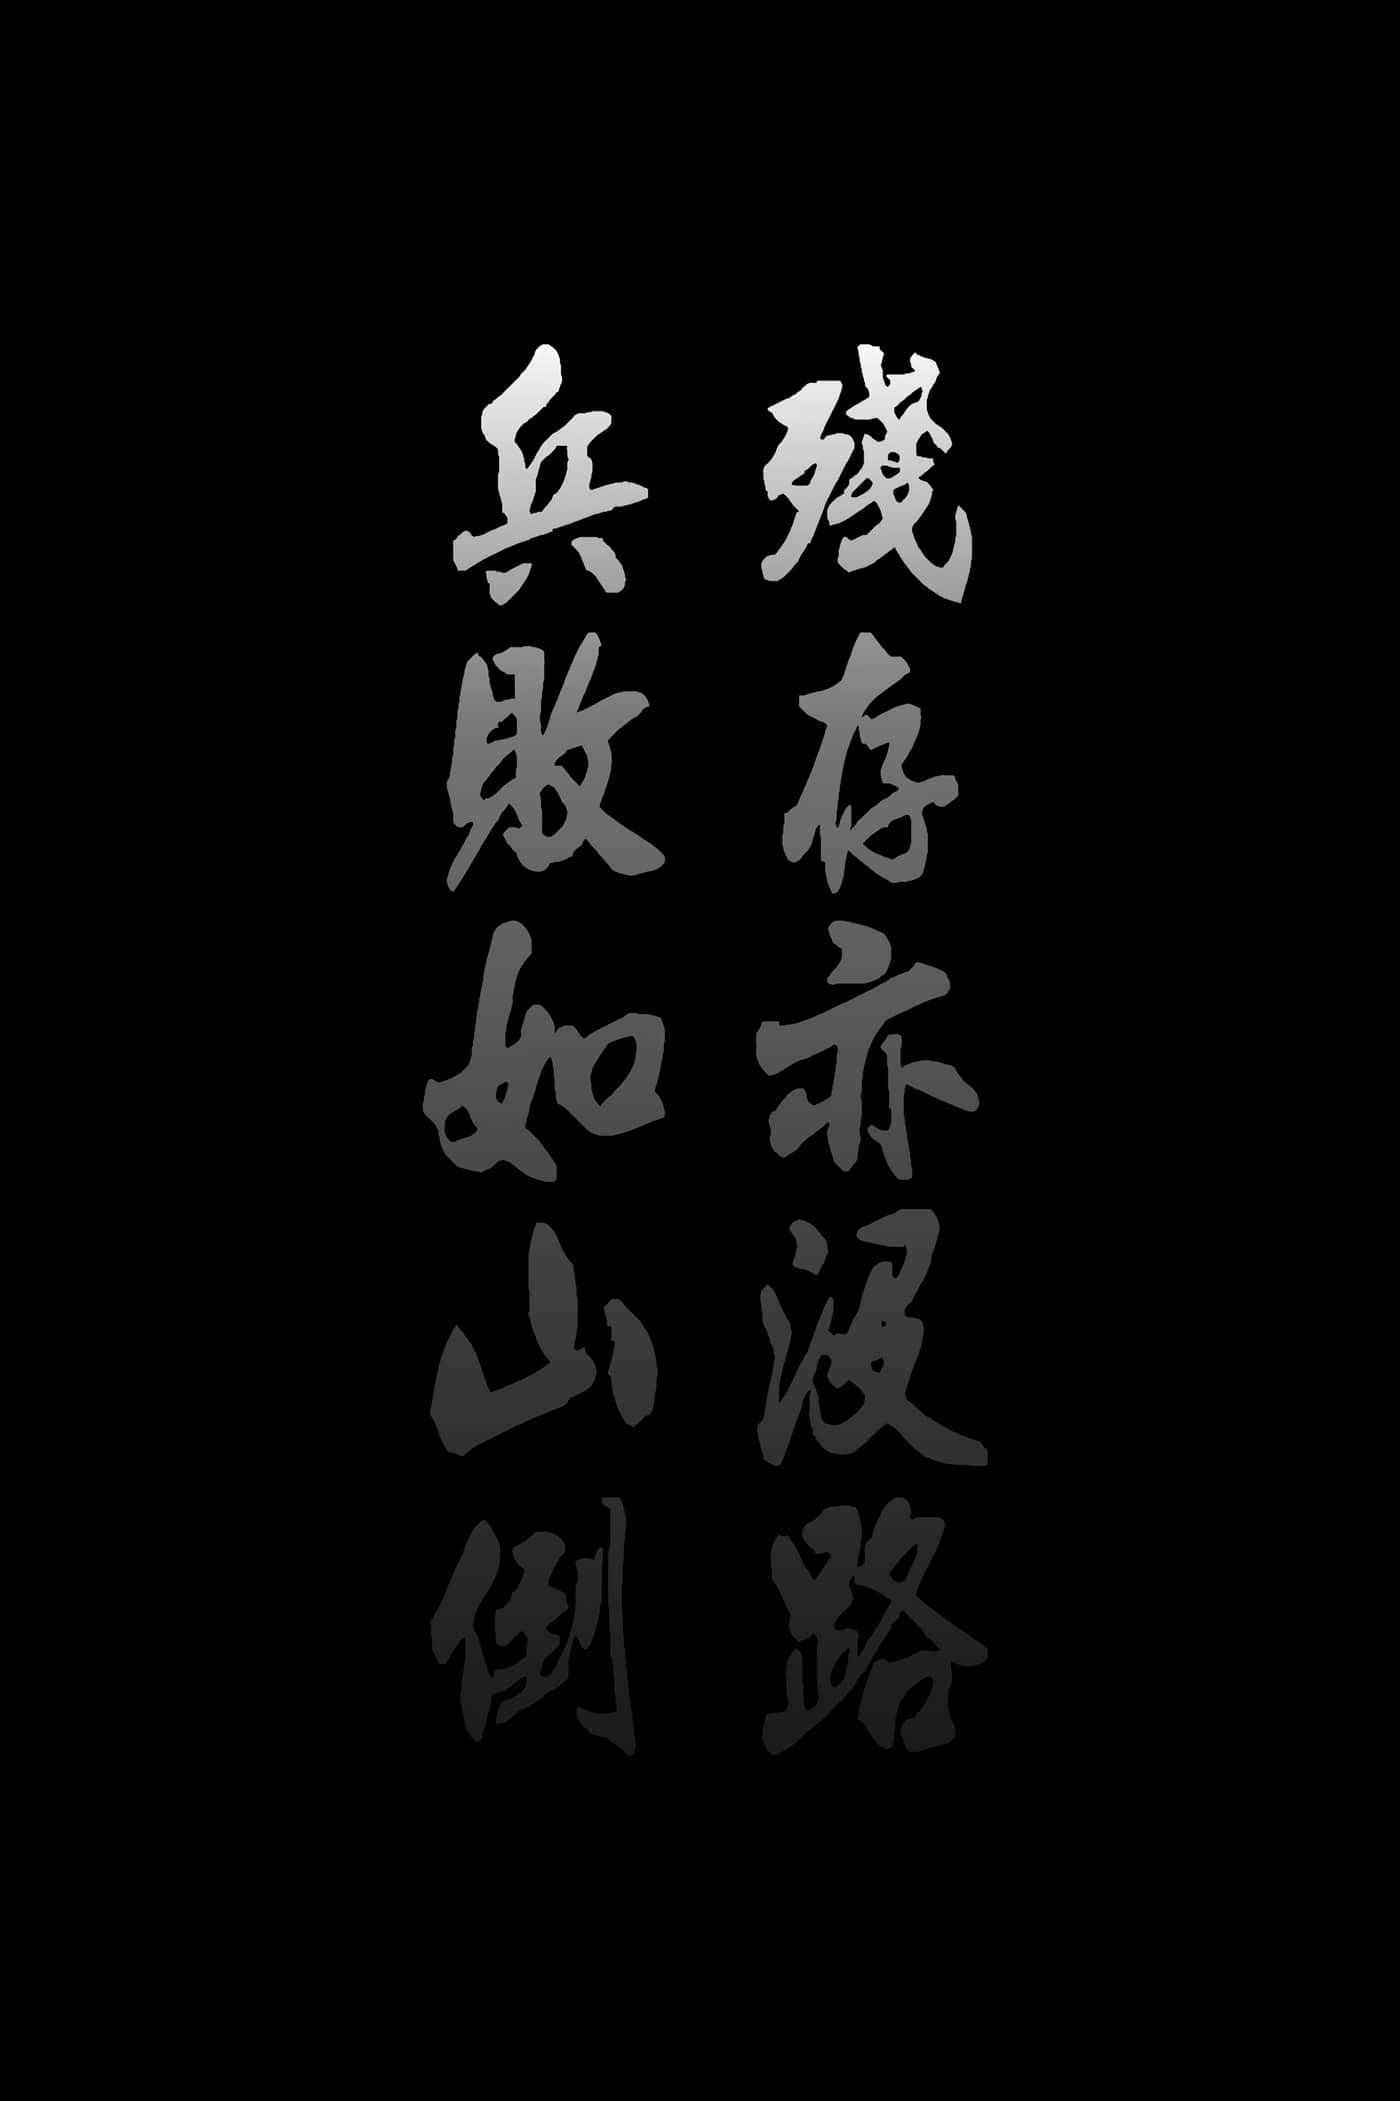 殘存亦沒路
兵敗如山倒